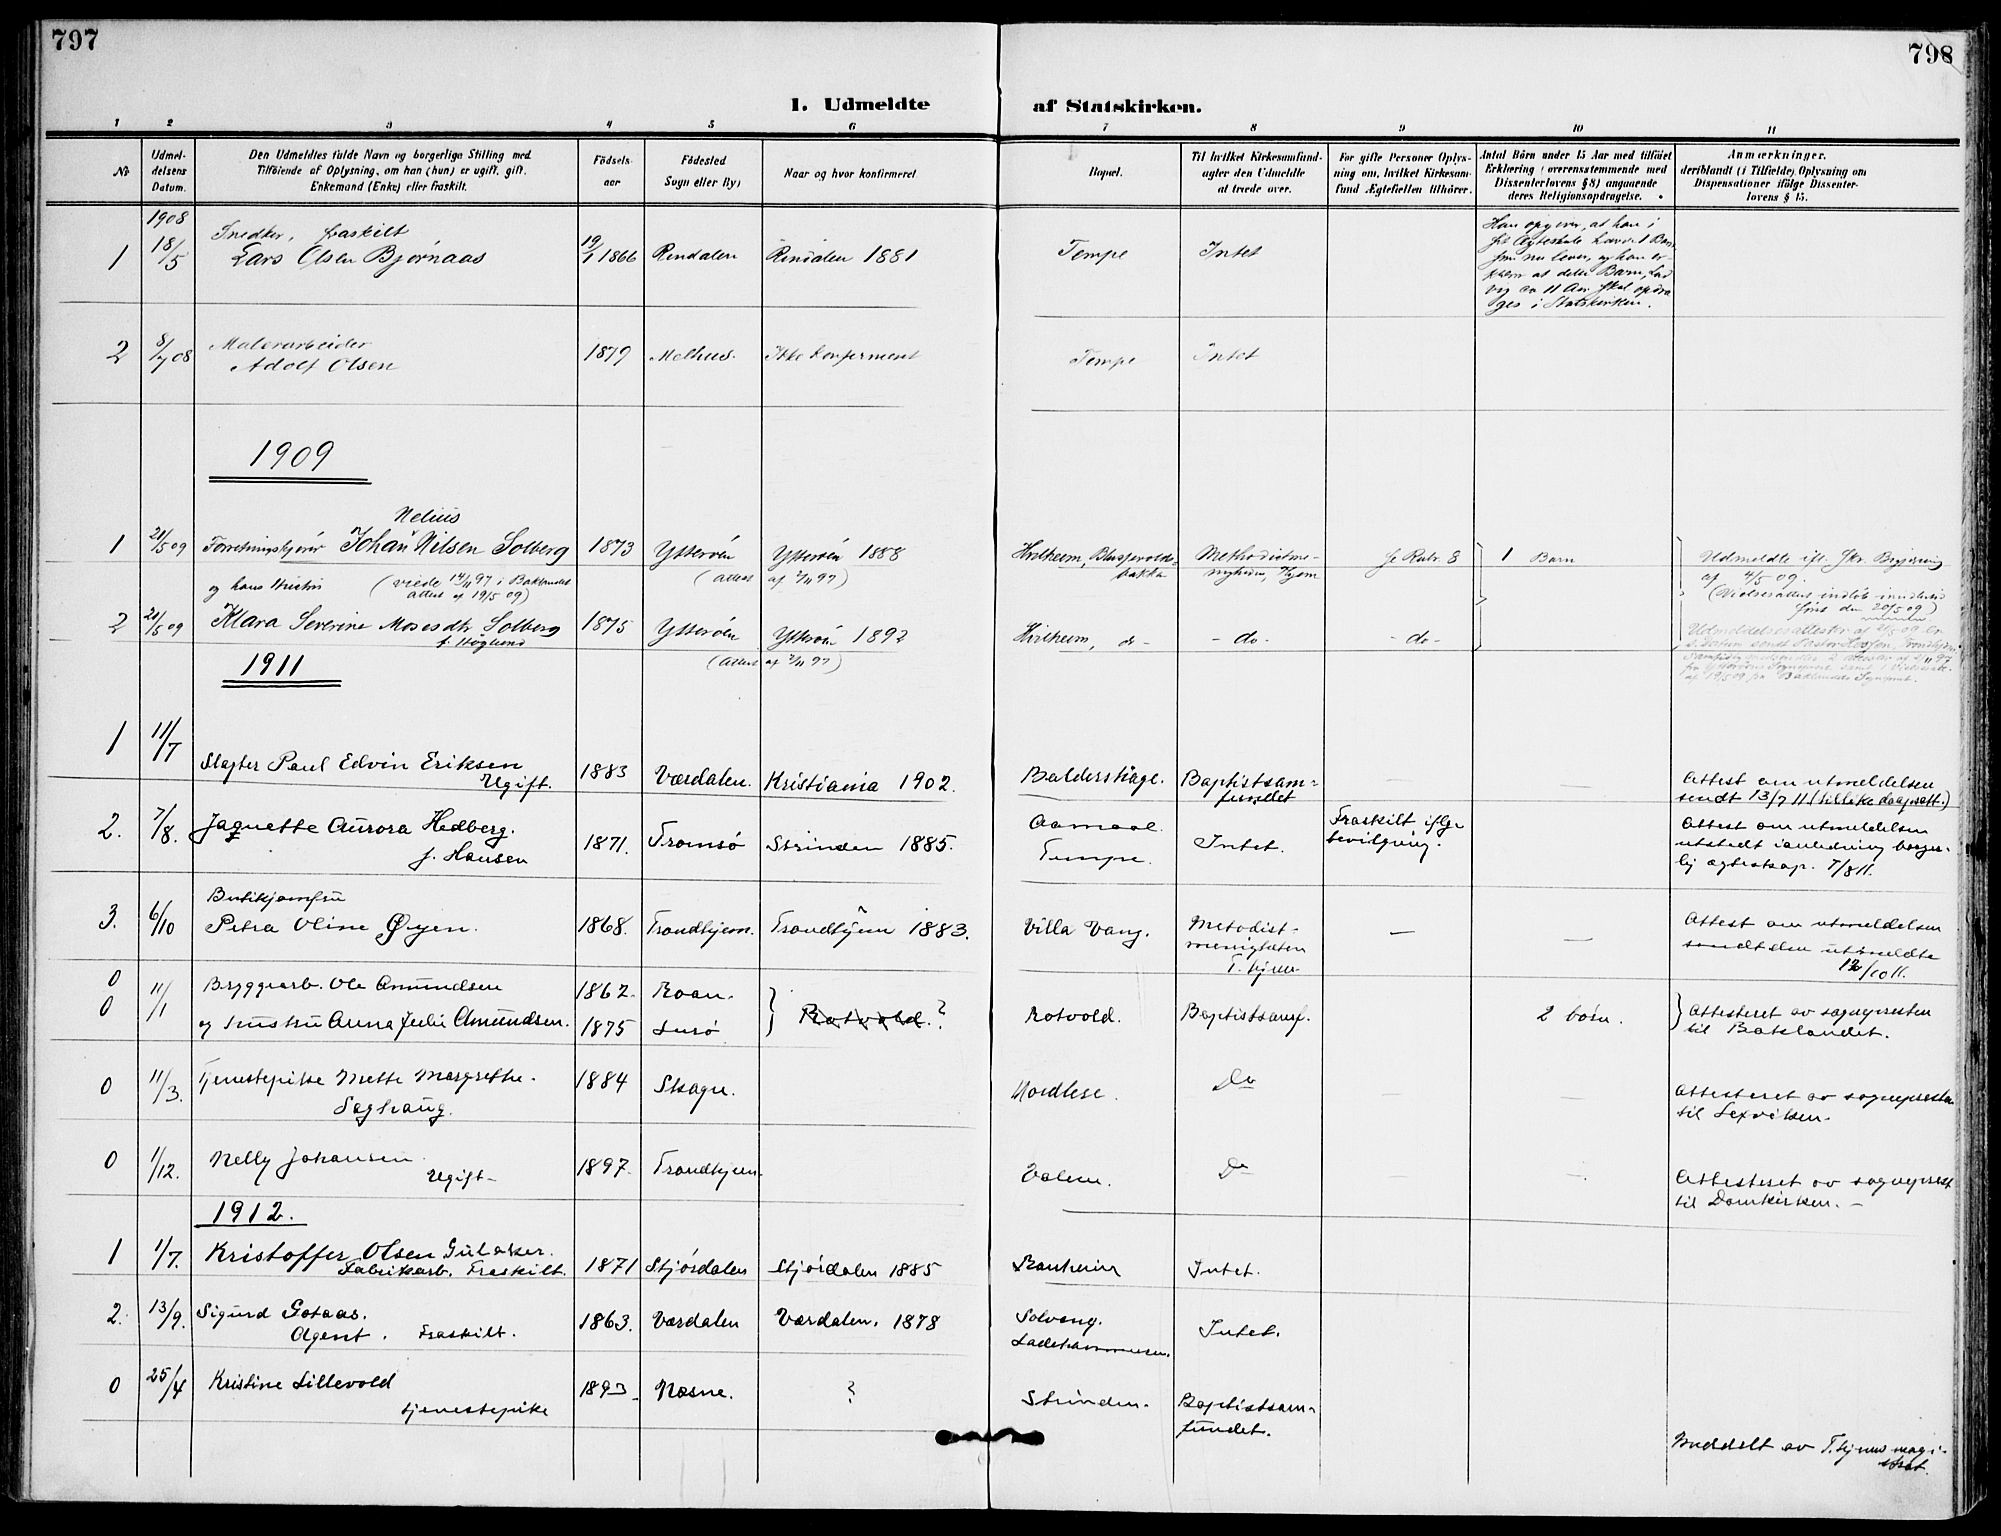 797
798
1. Udmeldte
af Statskirken.
1 2 3 4 5 6 7 8 9 10 11
Nr.
Udmel-
delsens
Datum.
Den Udmeldtes fulde Navn og borgerlige Stilling med
Tilføiende af Oplysning, om han (hun) er ugift, gift,
Enkemand (Enke) eller fraskilt.
Fødsels-
aar
Fødested
Sogn eller By)
Naar og hvor konfirmeret
Bopæl.
Til hvilket Kirkesamfund
agter den Udmeldte
at træde over.
For gifte Personer Oplys-
ning om, hvilket Kirkesam-
fund Ægtefællen tilhører.
Antal Børn under 15 Aar med tilføiet
Erklæring (overensstemmende med
Dissenterlovens § 8) angaaende
deres Religionsopdragelse.
Anmærkninger,
deriblandt (i Tilfælde) Oplysning om
Dispensationer ifølge Dissenter-
lovens § 15.
1908
1 18/5 Snedker, fraskilt
Lars Olsen Bjørnaas 19/1 1866 Rindalen Rindalen 1881 Tempe Intet
Han opgiver, at han i
sit Ægteskab havde 1 Barn
som nu lever, og han er-
klærer at dette Barn,
11 Aar skal opdra
ges i Statskirken.
2 8/7 08 Malerarbeider
Adolf Olsen 1879 Melhus. Ikke konfirmeret Tempe Intet
1909
Nelius
1 21/5 09 Forretningsfører Johan Nilsen Solberg 1873 Ytterøen Ytterøen 1888 Methodistme-
nigheden, Hjem se Rubr 8 1 Barn
og hans Hustru (viede 14/11 97 i Baklandet
Attest af 19/5 09)
(Attest af 2/11 97)
Udmeldte ifl. skr. Begjæring
af 4/5 09.
(Vielsesattest indløb imidlertid
først den 20/5 09)
2 21/5 09 Klara Severine Mosesdtr Solberg
f. Höglund 1875 Ytterøen Ytterøen 1892 do - - do - - do -
(Attest af 2/11 97)
Udmeldelsesattester af
af 19/5 09 fra Baklandets Sognepræst.
1911
1 11/7 Slagter Paul Edvin Eriksen
Ugift. 1883 Værdalen. Kristiania 1902. Baldershage. Baptistsam=
fundet — —
Attest om utmeldelsen
sendt 13/7 11 (tillike daapsatt.)
2. 7/8. Jaquette Aurora Hedberg.
f. Hansen 1871. Tromsø Strinden 1885. Aamaal.
Tempe. Intet. Fraskilt iflg.
bevilgning.
Attest om utmeldelsen
utstedt i anledning borger-
lig ægteskap. 7/8 11.
3. 6/10 Butikjomfru
Petra Oline Øyen. 1868. Trondhjem. Trondhjem 1883. Villa Vang. Metodist-
menigheten
T.hjem — —
Attest om utmeldelsen
sendt den utmeldte
12/10 11.
0 11/1 Bryggearb. Ole Amundsen 1862. Roan.
0 og hustru Anna Julie Amundsen. 1875 Rotvold. ? Rotvold. Baptistsamf. 2 børn.
Attesteret av sognepresten
til Baklandet.
0 11/3. Tjenestepike Mette Margrethe
Saghaug. 1884 Skage. Do — —
Attesteret av sognepresten
til Lexviken.
0 1/12. Nelly Johansen
Ugift - 1897. Trondhjem. Do — —
Attesteret av sogneprest
til Domkirken. —
1912.
1 1/7. Kristoffer Olsen Gulaker.
Fabrikarb. Fraskilt. 1871 Stjørdalen Stjørdalen 1885 Ranheim Intet.
2. 13/9. Sigurd Gotaas.
Agent. Fraskilt. 1863. Værdalen Værdalen. 1878 Solvang.
Ladehammeren. Intet.
0 25/4 Kristine Lillevold
tjenestepike 1893 Næsne. ? Strinden. Baptistsam-
fundet.
Meddelt av T.hjems magi-
strat.